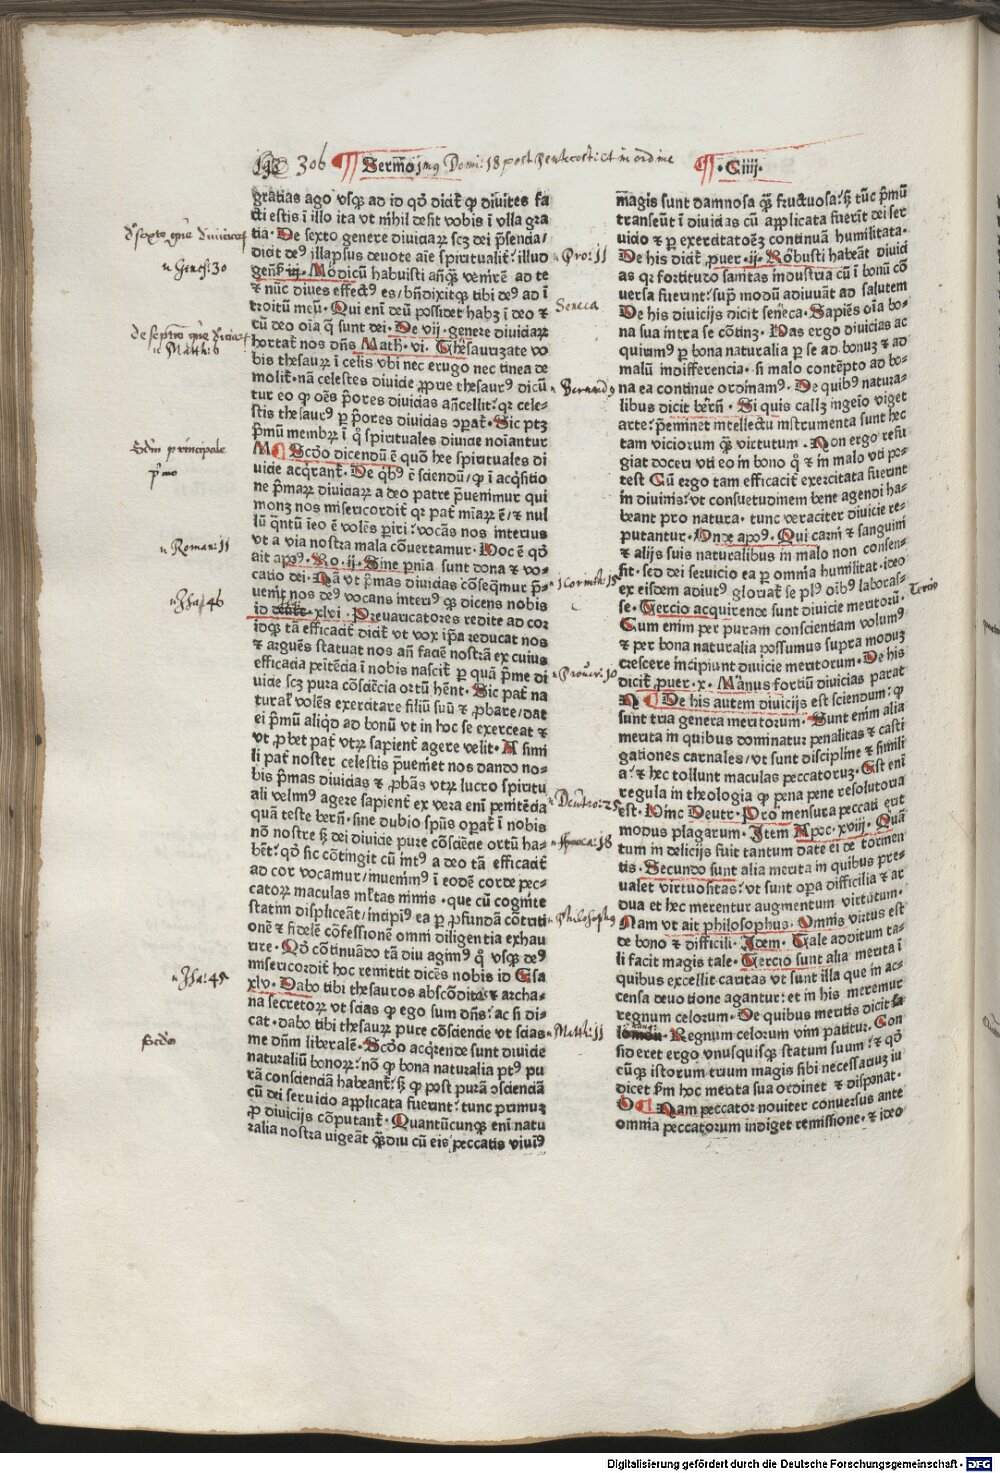 306 Sermo Domi: 18 post Pentecost: Ciiij.
gratias ago vsqꝫ ad id qď dicit ꝙ diuites fa
cti estis ī illo ita vt nihil desit vobis ī vlla gra
tia. De sexto genere diuiciaꝝ scꝫ dei p̄sencia/
genꝰ Modicū habuisti añqꝫ venirē ad te
⁊ nūc diues effectꝰ es/ bn̄dixitqꝫ tibi deꝰ ad ī
troitū meū. Qui enī deū possidet habꝫ ī deo ⁊
cū deo oīa q̄ sunt dei. De vij. genere diuiciaꝝ
hortat̄ nos dn̄s Math. vi. Thesaurizate vo
bis thesauꝝ ī celis vbi nec erugo nec tinea de
molit̄. nā celestes diuicie ꝓprie thesaurꝰ dicū
tur eo ꝙ oēs p̄ores diuicias ancellit. qꝛ cele-
stis thesaurꝰ p p̄ores diuicias ꝯparat̄. Sic ptꝫ
p̄mū membꝝ ī q̊ spirituales diuicie noīantur
M Scďo dicendū ē quō hee spirituales di
uicie acqrant̄. De qbꝰ ē sciendū/ ꝙ ī acqsitio
ne p̄maꝝ diuiciaꝝ a deo patre p̄uenimur qui
monꝫ nos misericordit̄ qꝛ pat̄ mīaꝝ ē/ ⁊ nul
lū qntū ī eo ē volēs periri. vocās nos interius
vt a via nostra mala cōuertamur. Hoc ē qď
ait apꝰ. Ro. ij. Sine pnia sunt dona ⁊ vo-
catio dei. Na vt p̄mas diuicias cōseqmur p̄-
uenit nos deꝰ vocans interiꝰ qꝫ dicens nobis
xlvi. Preuaricatores redite ad cor
idqꝫ tā efficacit̄ dicit̄ vt vox ip̄a reducat nos
⁊ arguēs statuat nos añ faciē nostrā ex cuius
efficacia peitēcia ī nobis nascit̄ p quā p̄me di
uicie scꝫ pura cōsciēcia ortū hn̄t. Sic pat̄ na
tural̄ volēs exercitare filiū suū ⁊ ꝓbare/ dat
ei p̄mū aliqd ad bonū vt in hoc se exerceat ⁊
vt ꝓbet pat̄ vtꝝ sapient̄ agere velit. A simi
li pat̄ noster celestis p̄uenit nos dando no-
bis p̄mas diuicias ⁊ ꝓbās vtꝝ lucro spiritu
ali velimꝰ agere sapient̄ ex vera enī penitēcia
quā teste bern̄. sine dubio spūs oꝑat̄ ī nobis
nō nostre sꝫ dei diuicie pure cōsciēcie ortū ha-
bēt. qď sic cōtingit cū intꝰ a deo tā efficacit̄
ad cor vocamur/ inuenimꝰ ī eodē corde pec-
catoꝝ maculas mltas nimis. que cū cognite
statim displiceāt/ incipiꝰ ea p ꝓfundā cōtriti
onē ⁊ fidelē cōfessionē omni diligentia exhau
rire. Qď cōtinuādo tā diu agimꝰ q̊ vsqꝫ deꝰ
misericordit̄ hoc remittit dicēs nobis id Esa
xlv. Dabo tibi thesauros abscōditos ⁊ archa-
na secretoꝝ vt scias ꝙ ego sum dn̄s. ac si di-
cat. dabo tibi thesauꝝ pure cōsciencie vt scias
me dn̄m liberalē. Scďo acqrende sunt diuicie
naturaliū bonoꝝ. nō ꝙ bona naturalia ptꝰ pu
rā conscienciā habeant. sꝫ ꝙ post purā ꝯscienciā
cū dei seruicio applicata fuerint. tunc primuꝫ
ꝓ diuicijs cōputant̄. Quantūcunqꝫ enī natu
ralia nostra vigeāt qꝫdiu cū eis peccatis viuiꝰ
magis sunt damnosa qꝫ fructuosa. sꝫ tūc p̄mū
transeūt ī diuicias cū applicata fuerit dei ser
uicio ⁊ p exercitatoēꝫ continuā humilitata.
De his dicit̄ puer. ij. Robusti habeāt diuici
as qꝛ fortitudo sanitas industria cū ī bonū cō
uersa fuerint. sup̄ modū adiuuāt ad salutem
De his diuicijs dicit seneca. Sapiēs oīa bo-
na sua intra se cōtinꝫ. Has ergo diuicias ac
quirimꝰ p bona naturalia p se ad bonuꝫ ⁊ ad
malū indifferencia. si malo contēpto ad bo-
na ea continue ordinamꝰ. De quibꝰ natura-
libus dicit bern̄. Si quis callꝫ ingeio viget
arte. p̄eminet intellectu instrumenta sunt hec
tam viciorum qꝫ virtutum. Non ergo refu
giat doceri vti eo in bono q̊ ⁊ in malo vti po-
test Cū ergo tam efficacit̄ exercitata fuerint
in diuinis. vt consuetudinem bene agendi ha-
beant pro natura. tunc veraciter diuicie re-
putantur. Vnde apꝰ. Qui carni ⁊ sanguini
⁊ alijs suis naturalibus in malo non consen-
sit. sed dei seruicio ea p omnia humilitat. ideo
ex eisdem adiutꝰ gloriat̄ se plꝰ oībꝰ laboras-
se. Tercio acquirende sunt diuicie meritorū.
Cum enim per puram conscientiam volumꝰ
⁊ per bona naturalia possumus supra moduꝫ
crescere incipiunt diuicie meritorum. De his
dicit̄ puer. x. Manus fortiū diuicias parat
N De his autem diuicijs est sciendum. ꝙ
sunt tria genera meritorum. Sunt enim alia
merita in quibus dominatur penalitas ⁊ casti
gationes carnales/ vt sunt discipline ⁊ simili
a. ⁊ hec tollunt maculas peccatoruꝫ. Est enī
regula in theologia ꝙ pena pene resolutoria
est. Hinc Deutr. Pro mensura peccati erit
modus plagarum. Item Apoc. xviij. Quā
tum in delicijs fuit tantum date ei de tormen
tis. Secundo sunt alia merita in quibus pre-
ualet virtuositas. vt sunt oꝑa difficilia ⁊ ar
dua et hec merentur augmentum virtutum.
Nam vt ait philosophus. Omnis virtus est
de bono ⁊ difficili. Idem. Tale additum ta-
li facit magis tale. Tercio sunt alia merita ī
quibus excellit caritas vt sunt illa que in ac-
censa deuotione agantur. et in his meremur
regnum celorum. De quibus meritis dicit
Regnum celorum vim patitur. Con
sideret ergo vnusquisqꝫ statum suum. ⁊ qď
cūqꝫ istorum trium magis sibi necessariuꝫ iu
dicet h̄m hoc merita sua ordinet ⁊ disponat.
O Nam peccator nouiter conuersus ante
omnia peccatorum indiget remissione. ⁊ ideo
Genes: 30
Matth: 6
Roman: 11
Jsa: 46
Jsa: 45
Pro: 11
Seneca
Bernardꝰ
1 Corinth: 15
Prouer: 10
Deutro: 25
Apoca: 18
Philosophꝰ
Matth: 11
Tercio
Digitalisierung gefördert durch die Deutsche Forschungsgemeinschaft - DFG